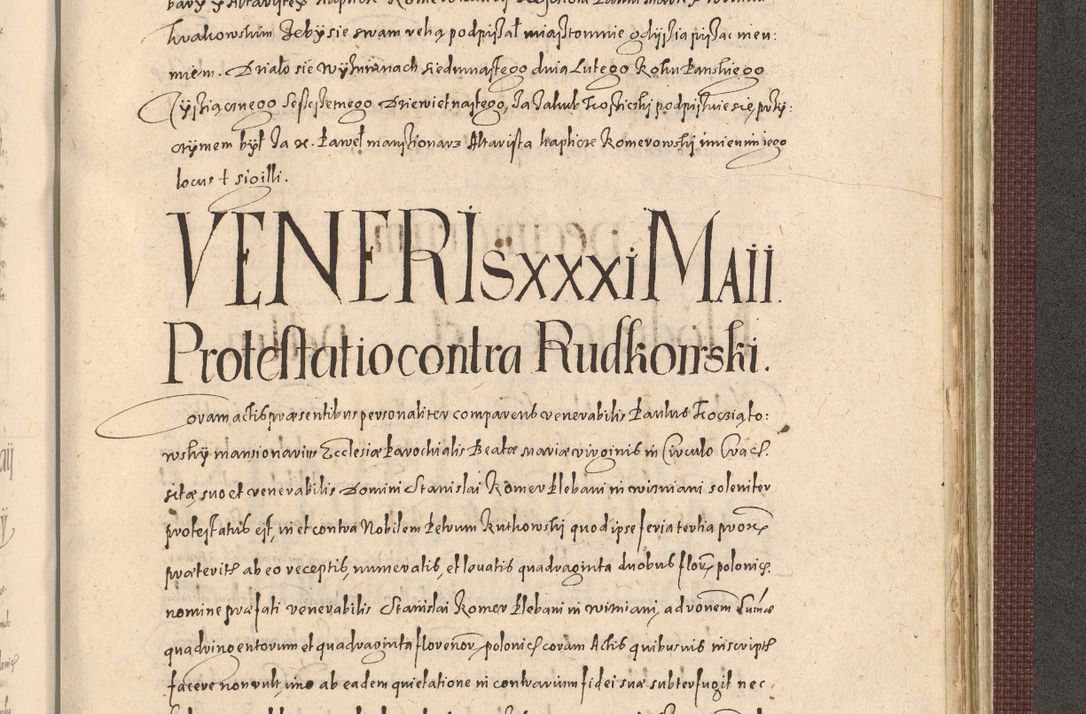 krakowskim żeby sie swam ręką podpisał miasto mnie gdyż ia pisac nieu:
miem. Działo sie wyżnianach siedmnastego dnia Lutego Roku Pańskiego
Tysiącznego Sesćsetnego Dziewietnastego, Ja Jakub podpisuie się, przy:
czymem był Ja x. Paweł mansionarz Altarista kaplice Komerowskij imieniem iego
locus + sigilli.
VENERIS XXXI MAII.
Protestatio contra Rudkowski.
Coram actis præsentibus personaliter comparens venerabilis Paulus
wskÿ mansionarius Ecclesiæ Parochialis Beatæ mariæ virginis in Circulo Crac.
sitæ suo et venerabilis Domini Stanislai Komer Plebani in wizniani soleniter
protestatus est, in et contra Nobilem Petrum Rutkowskij quod ipse feria tertia prox
præterit ab eo receptis, numeratis, et levatis quadraginta duobus flor. polonic.
nomine præfati venerabilis Stanislai Komer Plebani in wizniani, ad ronem sumæ
quadringentorum et quadraginta florenor. polonic coram Actis quibusuis inscript
facere non vult, imo ab eadem quietatione in contrarium fidei suæ subterfugit nec